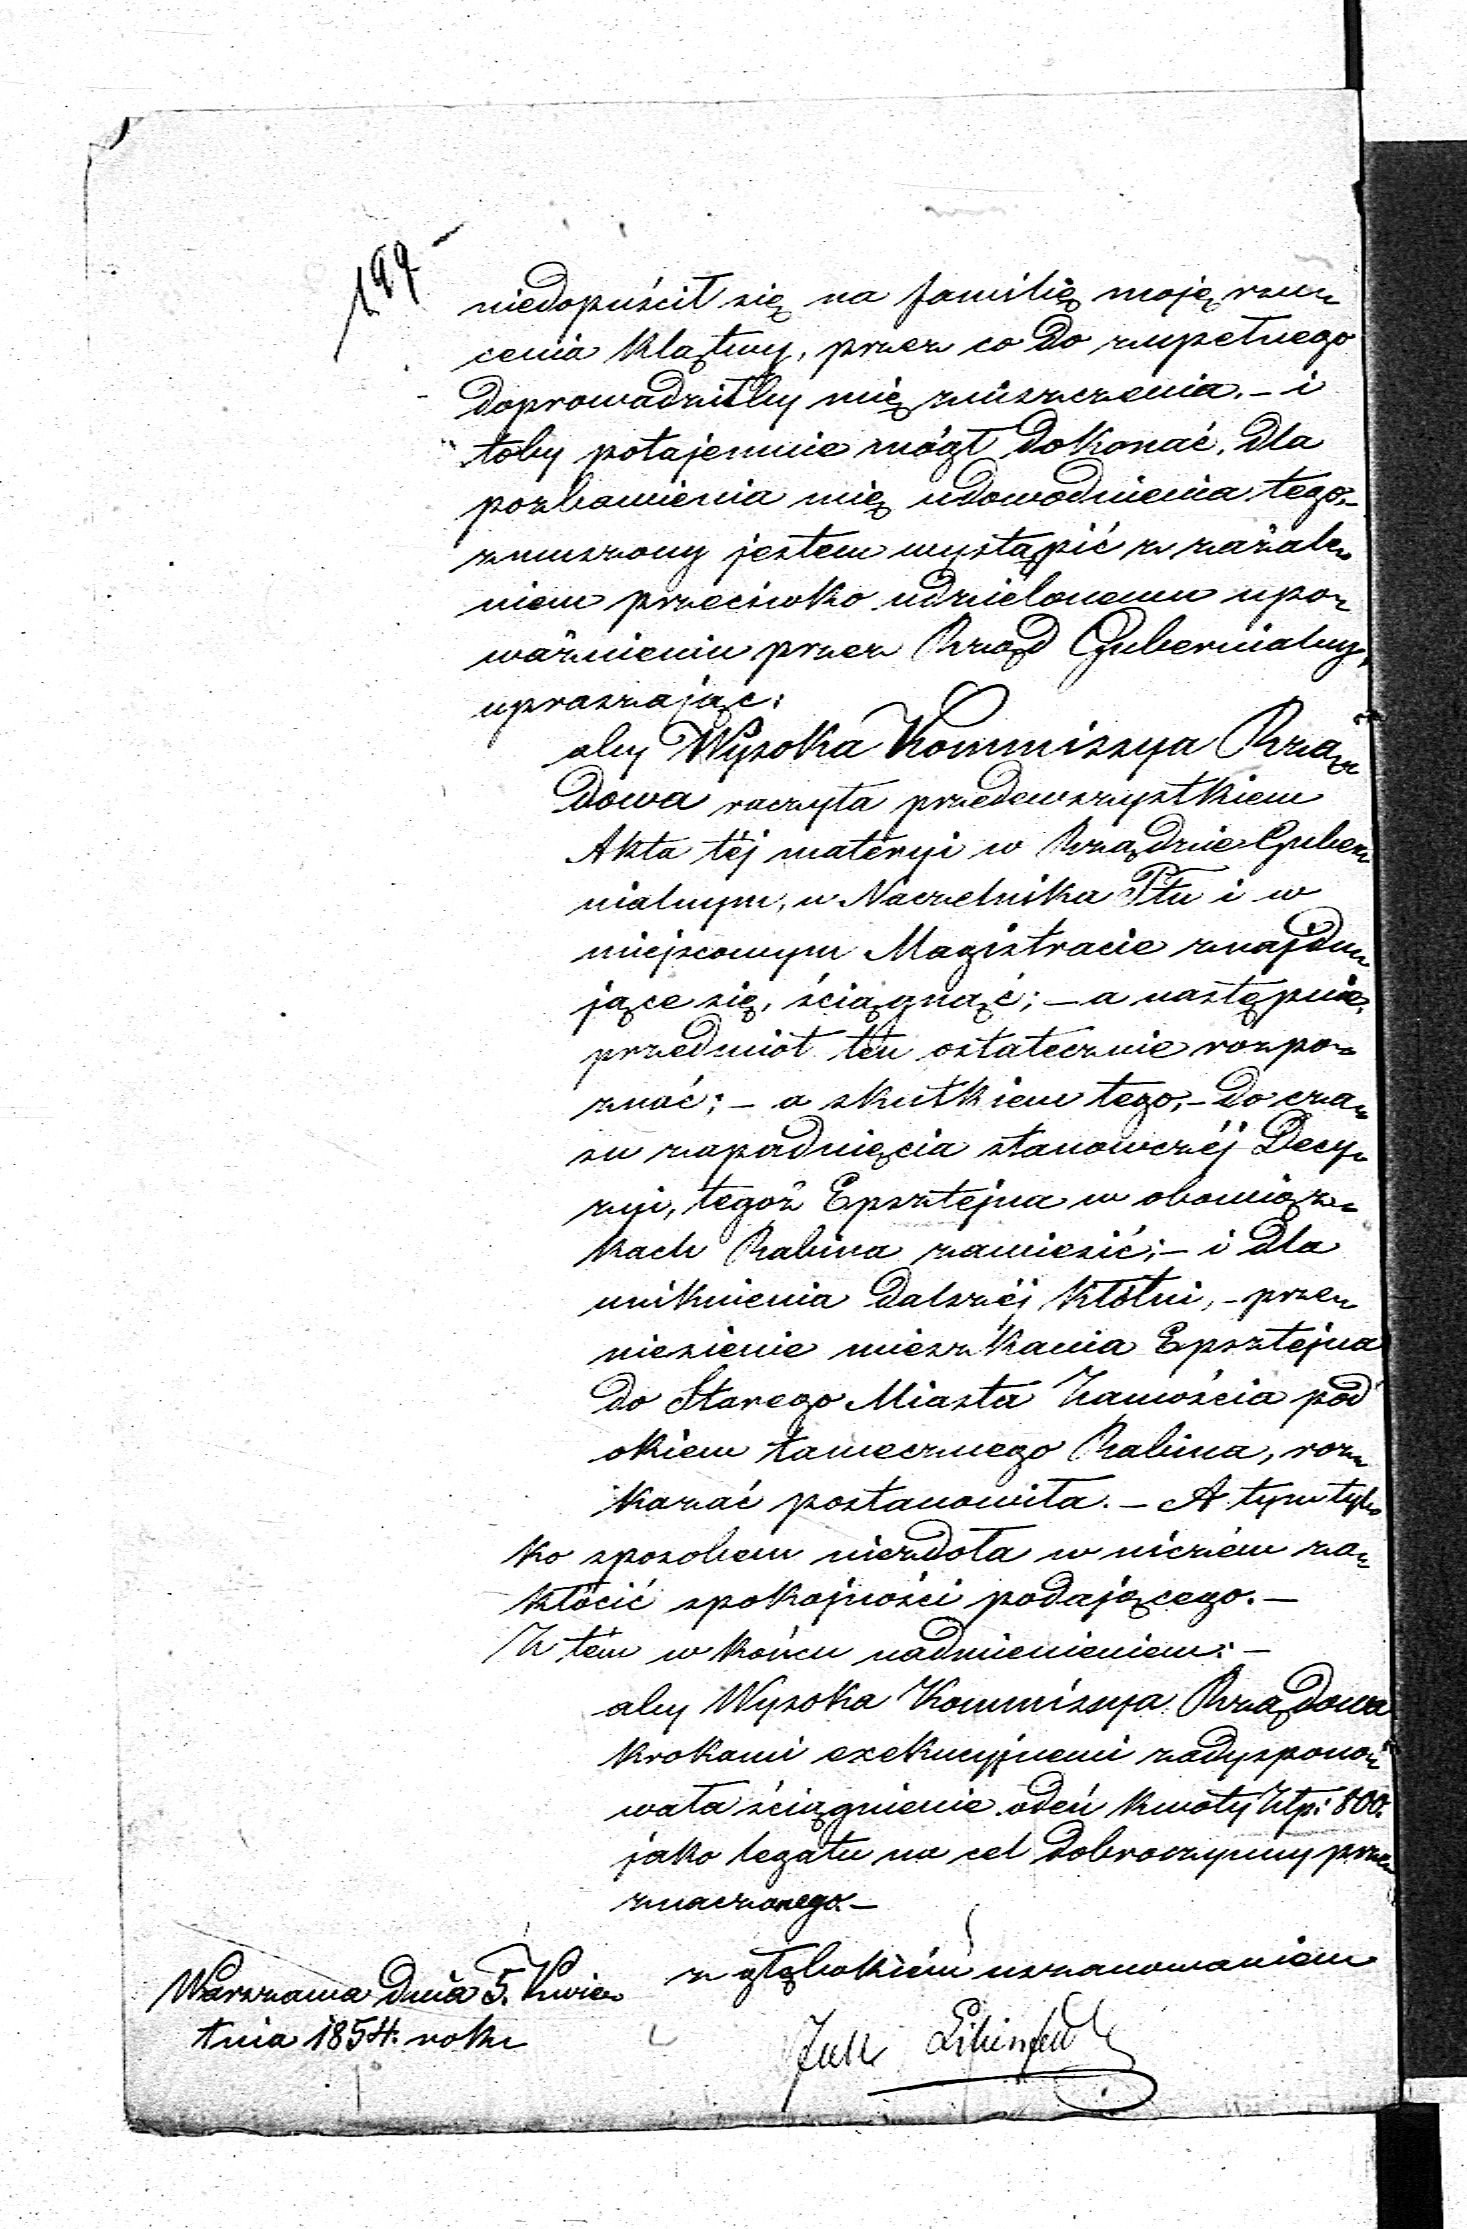 199
niedopuścił się na familię moję rzu=
cenia klątwy, przez co do zupełnego
doprowadziłby mię zniszczenia. – i
toby potajemnie mógł dokonać, dla
pozbawienia mię udowodnienia tego, –
zmuszony jestem wystąpić z zażale=
niem przeciwko udzielonemu upo=
ważnieniu przez Rząd Gubernialny,
upraszając:
aby Wysoka Kommissya Rzą=
dowa raczyła przedewszystkiem
Akta téj materyi w Rządzie Guber=
nialnym, u Naczelnika Ptu i w
miejscowym Magistracie znajdu=
jące się, ściągnąć; – a następnie,
przedmiot ten ostatecznie rozpo=
znać; – a skutkiem tego, – do cza=
su zapadnięcia stanowczéj Decy=
zyi, tegoż Epsztejna w obowiąz=
kach Rabina zawiesić; – i dla
uniknienia dalszéj kłótni, – prze=
niesienie mieszkania Epsztejna
do Starego Miasta Zamościa pod
okiem tamecznego Rabina, roz=
kazać postanowiła. – A tym tyl=
ko sposobem niezdoła w niczém za=
kłócić spokojności podającego. –
Z tém w końcu nadmienieniem: –
aby Wysoka Kommissya Rządowa
krokami exekucyjnemi zadyspono=
wała ściągnienie odeń kwoty Złp: 800.
jako legatu na cel dobroczynny prze=
znaczonego. –
z głębokiém uszanowaniem
Warszawa dnia 5. Kwie=
tnia 1854. roku